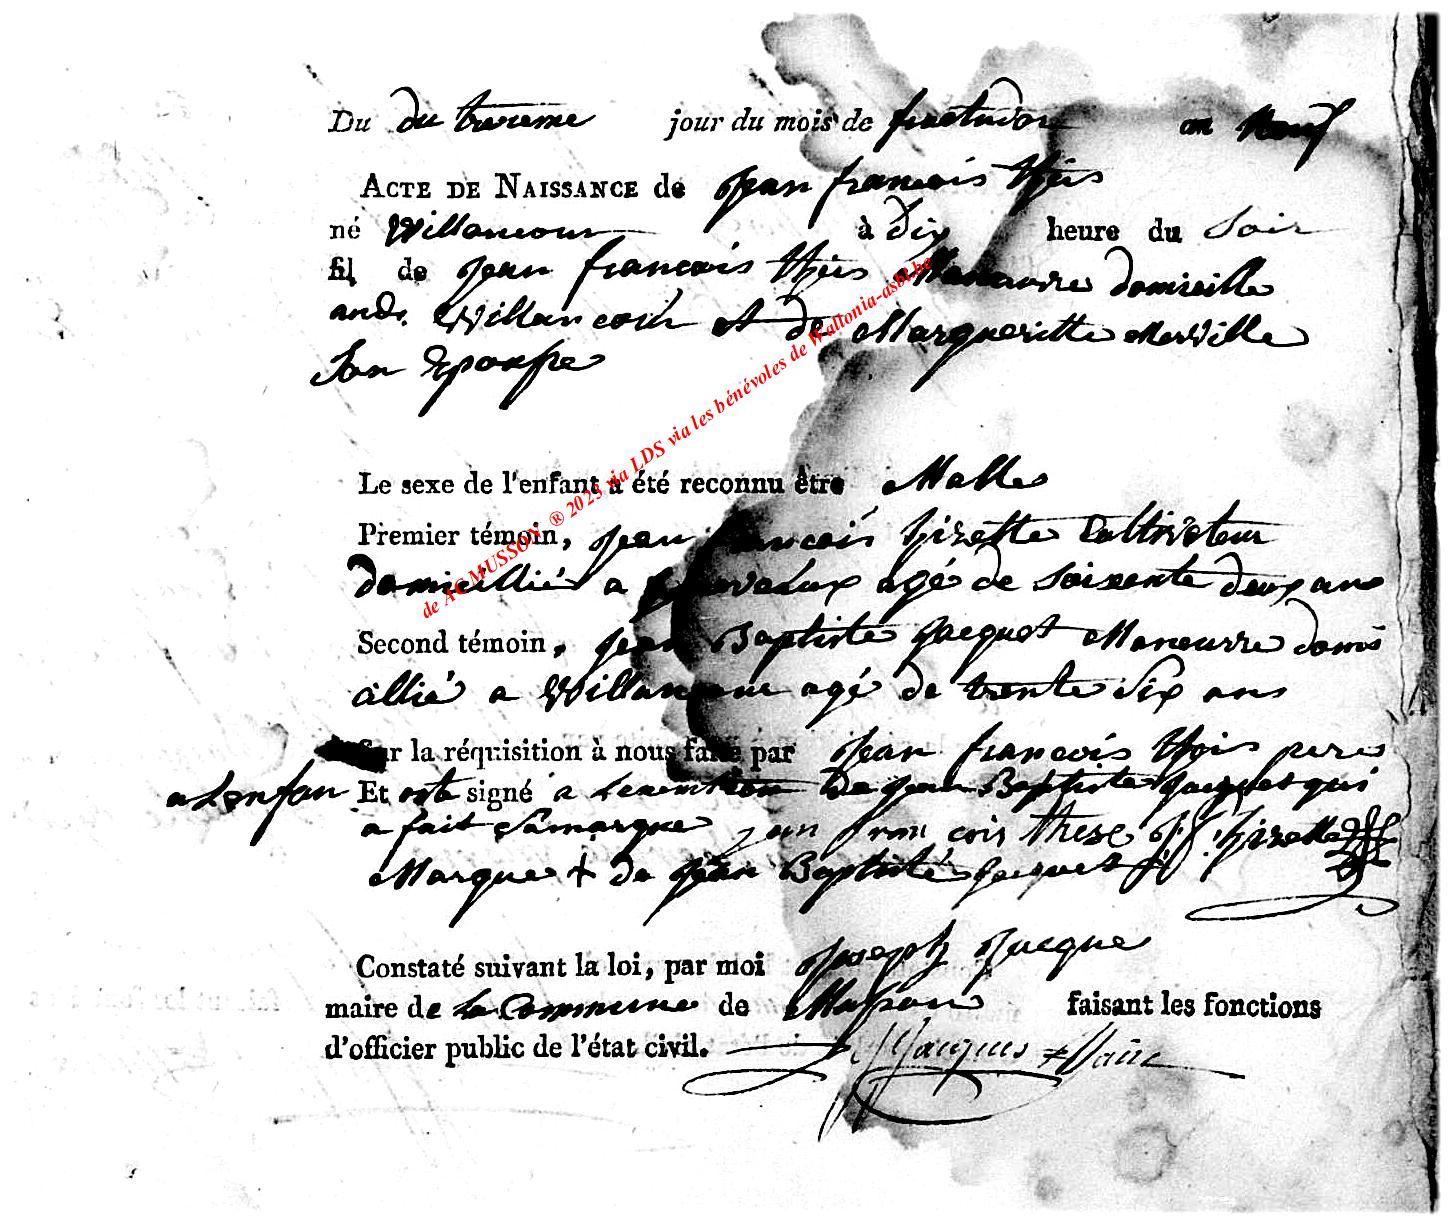 Du du treizeme jour du mois de fructidor an Neuf
ACTE DE NAISSANCE de Jean francois this
né Willancour à dix heure du Soir
fil de Jean francois this Maneuvre domicille
audi Willancour et de Margueritte Merville
Son Epousse
Le sexe de l'enfant a été reconnu être Malle
Premier témoin, Jean francois hizette Cultivateur
domicillié a agé de Soixente deux ans
Second témoin, Jean Baptiste Jacquet Maneuvre domi
cillié a Willancour agé de trente Six ans
Sur la réquisition à nous faite par Jean francois this pere
a Lenfan Et ont signé a de Jean Baptiste Jacquet qui
a fait Samarque jan fran cois these J f hizette
Marque + de Jean Baptiste Jacquet
Constaté suivant la loi, par moi Joseph Jacque
maire de la Commune de Musson faisant les fonctions
d'officier public de l'état civil. Jacques Maire
de AC MUSSON ® 2023 via LDS via les bénévoles de Wallonia-asbl.be